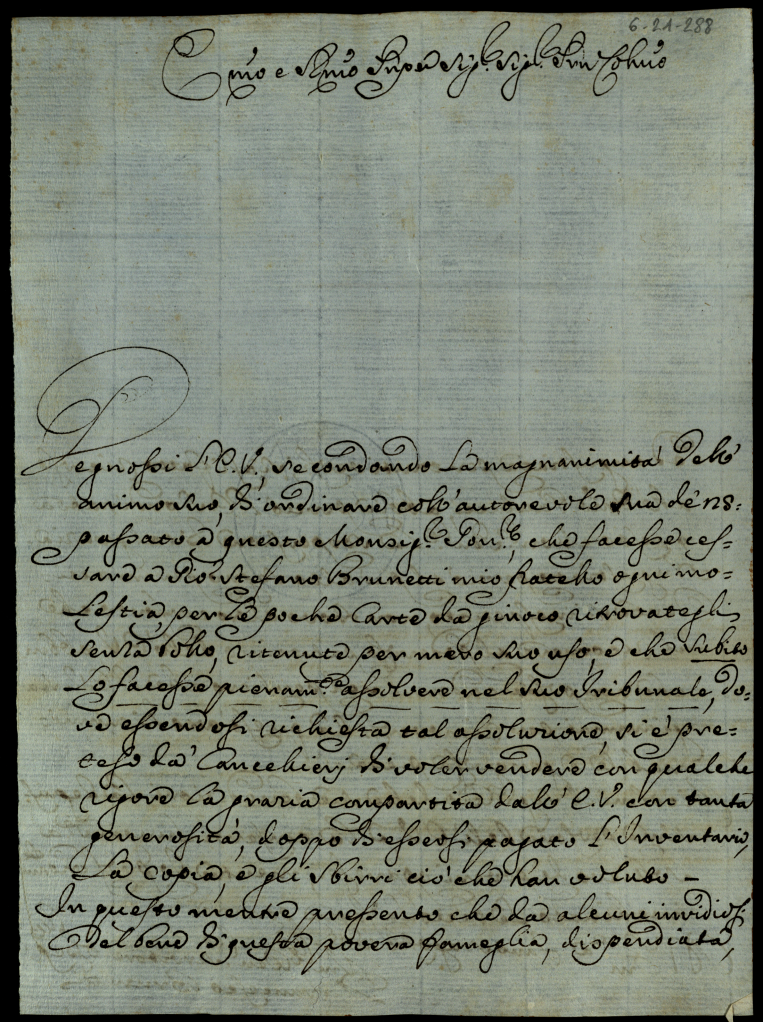 6-21-288
Em̃o e Rm̃o Prñpe Sig.r Sig.r Prñ Colm̃o
Degnossi l'E.V., secondando la magnanimità dell'
animo suo, di ordinare coll'autorevole sua de' 28:
passato à questo Monsig.r Gov.re, che facesse ces-
sare à Gio: Stefano Brunetti mio fratello ogni mo-
lestia, per le poche carte da giuoco, ritrovategli
senza bollo, ritenute per mero suo uso, e che subito
lo facesse pienam.te assolvere nel suo Tribunale, do-
ve essendosi richiesta tal assoluzione, si è pre-
teso da' Cancellierj di voler vendere con qualche
rigore la grazia compartita dall'E.V. con tanta
generosità, doppo di essersi pagato l'Inventario,
la copia, e gli sbirri ciò che han voluto –
In questo mentre pressento che da alcuni invidiosi
del bene di questa povera fameglia, dispendiata,